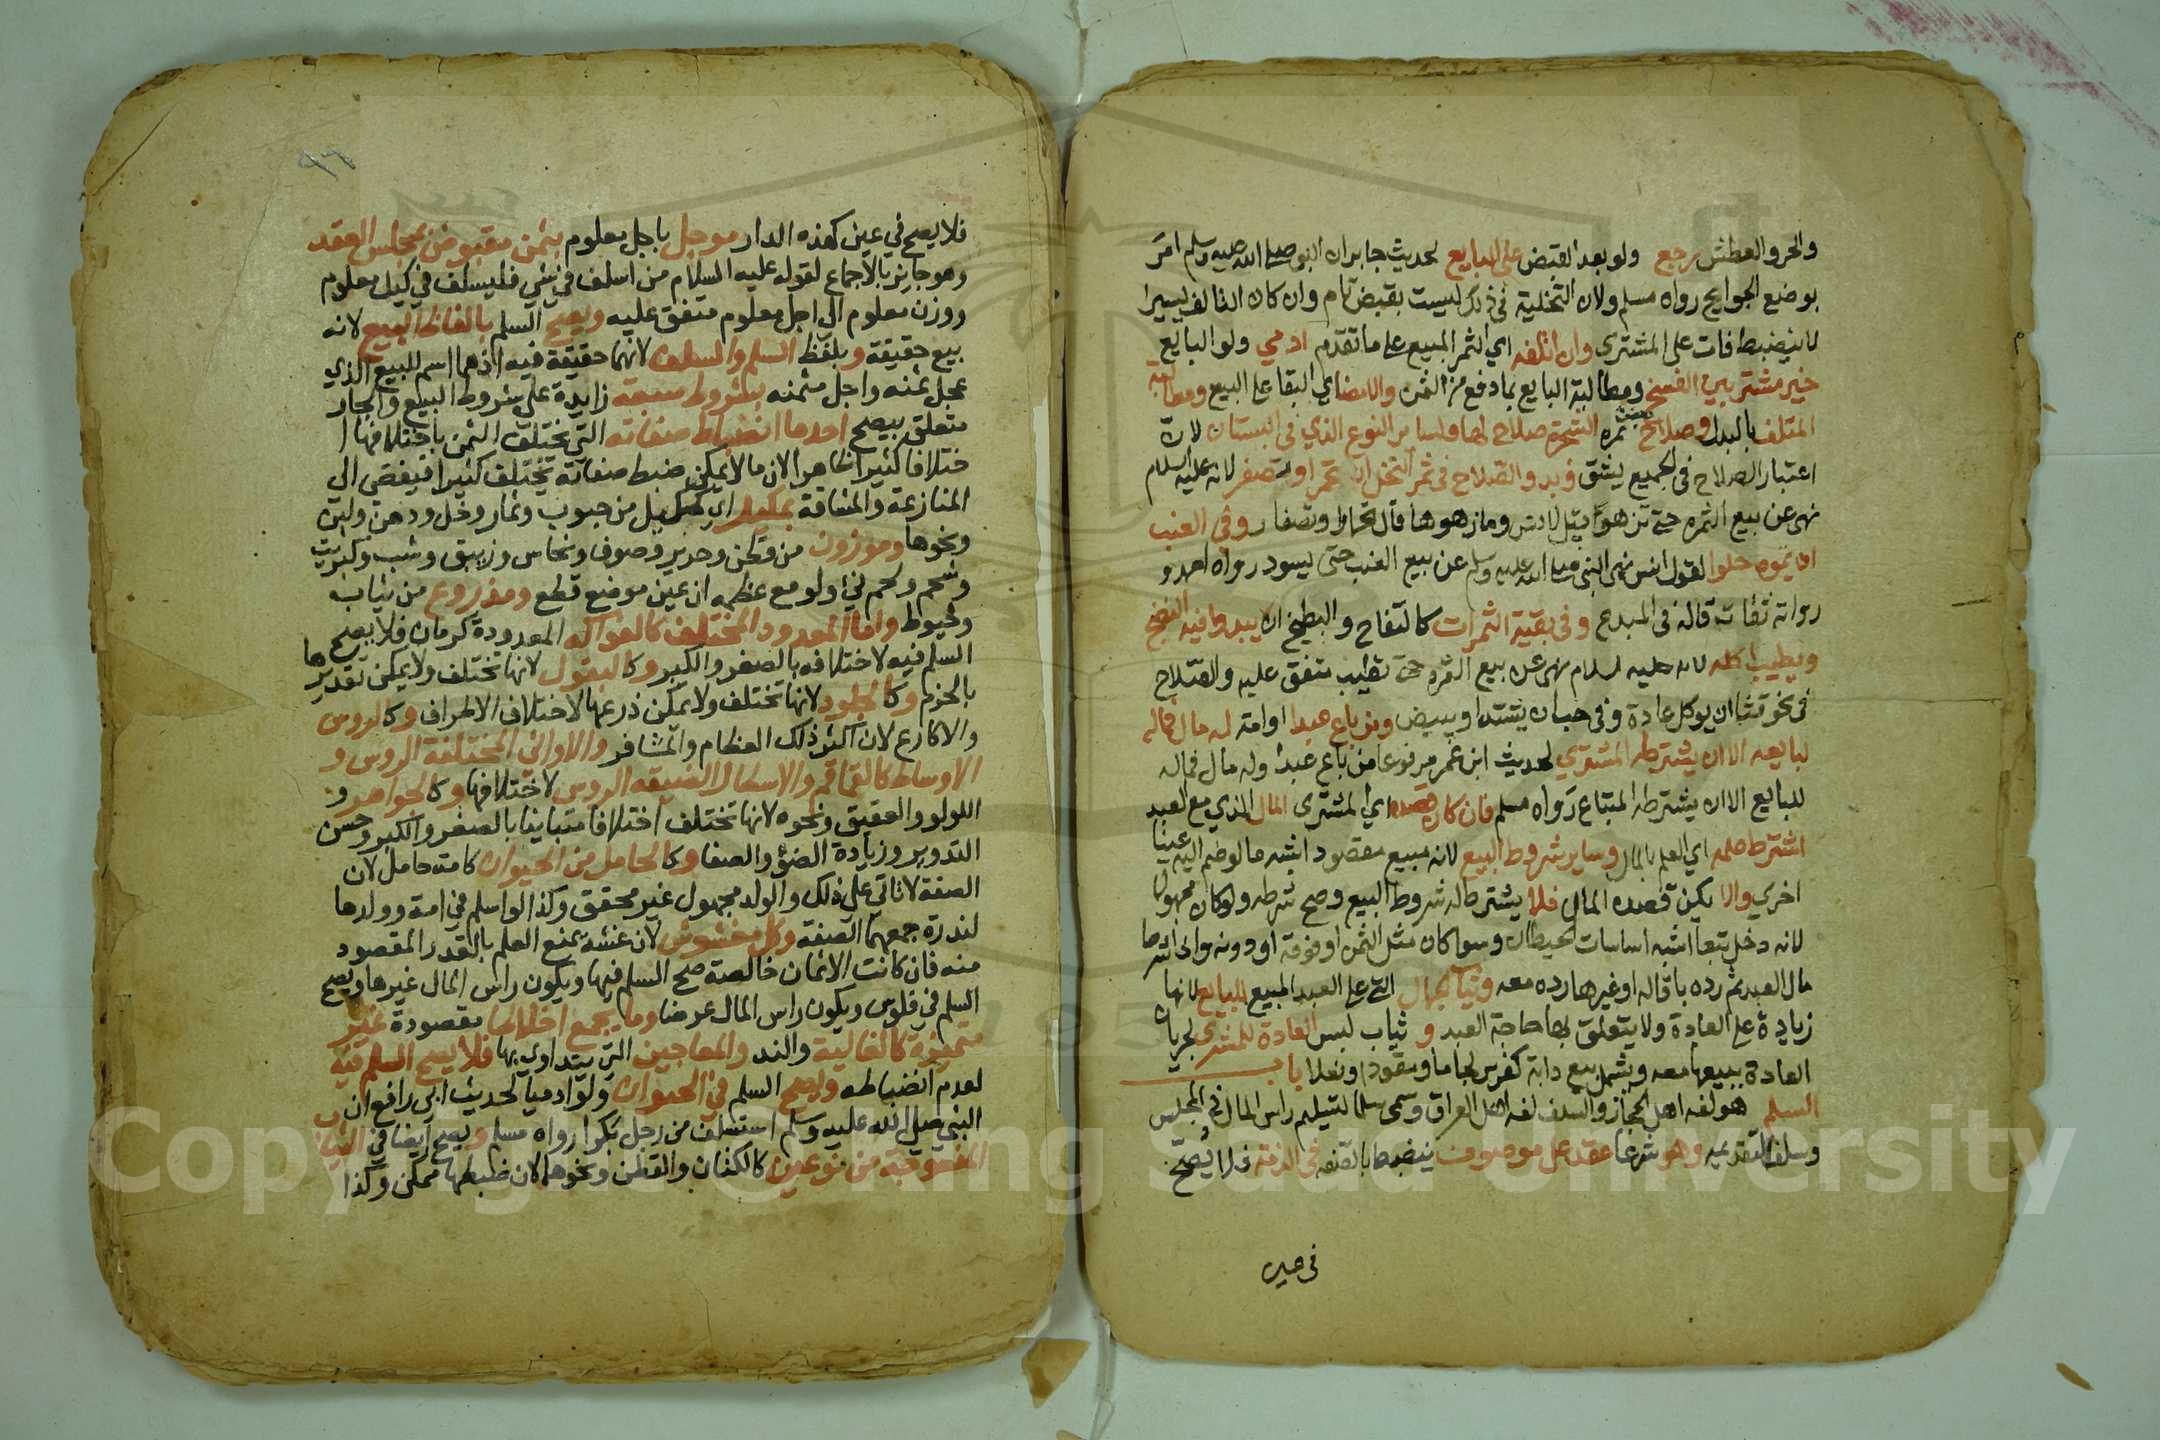 والحر والعطش رجع ولو بعد القبض على البايع لحديث جابر ان النبي صلى الله عليه وسلم امر
بوضع الجوايح رواه مسلم ولان التخلية في ذلك ليست بقبض تام وان كان التالف يسيرا
لا ينضبط فات على المشتري وان اتلفه اي الثمر المبيع على ما تقدم ادمي ولو البايع
خير مشتر بين الفسخ ومطالبة البايع بما دفع من الثمن والامضاي البقا على البيع ومطالبة
المتلف بالبدل وصلاح بعض ثمرة الشجرة صلاح لها ولساير النوع الذي في البستان لان
اعتبار الصلاح في الجميع يشق وبدو الصلاح في ثمر النخل ان تحمر او تصفر لانه عليه السلام
نهى عن بيع الثمرة حتى تزهو قيل لانس وما زهوها قال تحمار وتصفار وفي العنب
ان يتموه حلوا لقول انس نهى النبي صلى الله عليه وسلم عن بيع العنب حتى يسود رواه احمد و
رواته ثقات قاله في المبدع وفي بقية الثمرات كالتفاح والبطيخ ان يبدو فيه النضج
ويطيب اكله لانه عليه السلام نهى عن بيع الثمرة حتى تطيب متفق عليه والصلاح
في نحو قثا ان يوكل عادة وفي حب ان يشتد او يبيض ومن باع عبدا او امة له مال فماله
لبايعه الا ان يشترطه المشتري لحديث ابن عمر مرفوعا من باع عبدا وله مال فماله
للبايع الا ان يشترطه المبتاع رواه مسلم فان كان قصده اي المشتري المال الذي مع العبد
اشترط علمه اي العلم بالمال وساير شروط البيع لانه مبيع مقصود اشبه ما لو ضم اليه عينا
اخري والا يكن قصده المال فلا يشترط له شروط البيع وصح شرطه ولو كان مجهولا
لانه دخل تبعا اشبه اساسات الحيطان وسوا كان مثل الثمن او فوقه او دونه واذا اشترى
مال العبد ثم رده باقالة او غيرها رده معه وثياب الجمال التي على العبد المبيع للبايع لانها
زيادة على العادة ولا يتعلق بها حاجة العبد و ثياب لبس العادة للمشتري لجريان
العادة ببيعها معه ويشمل بيع دابة كفرس لجاما ومقودا ونعلا باب
السلم هو لغة اهل الحجاز والسلف لغة اهل العراق وسمي سلما لتسليم راس المال في المجلس
وسلفا لتقديمه وهو شرعا عقد على موصوف ينضبط بالصفة في الذمة فلا يصح
في عين
٩٦
فلا يصح في عين كهذه الدار موجل باجل معلوم بثمن مقبوض بمجلس العقد
وهو جايز بالاجماع لقوله عليه السلام من اسلف في شي فليسلف في كيل معلوم
ووزن معلوم الى اجل معلوم متفق عليه ويصح السلم بالفاظ البيع لانه
بيع حقيقة وبلفظ السلم والسلف لانهما حقيقة فيه اذ هما اسم للبيع الذي
عجل ثمنه واجل مثمنه بشروط سبعة زايدة على شروط البيع والجار
متعلق بيصح احدها انضباط صفاته التي يختلف الثمن باختلافها ا
ختلافا كثيرا ظاهرا لان ما لا يمكن ضبط صفاته يختلف كثيرا فيفضي الى
المنازعة والمشاقة بمكيل اي كمكيل من حبوب وثمار وخل ودهن ولبن
ونحوها وموزون من قطن وحرير وصوف ونحاس وزيبق وشب وكبريت
وشحم ولحم ني ولو مع عظمه ان عين موضع قطع ومذروع من ثياب
وخيوط واما المعدود المختلف كالفواكه المعدودة كرمان فلا يصح
السلم فيه لاختلافه بالصغر والكبر وكالبقول لانها تختلف ولا يمكن تقديرها
بالحزم وكالجلود لانها تختلف ولا يمكن ذرعها لاختلاف الاطراف وكالروس
والاكارع لان اكثر ذلك العظام والمشافر والاواني المختلفة الروس و
الاوساط كالقماقم والاسطال الضيقة الروس لاختلافها وكالجواهر و
اللولو والعقيق ونحوه لانها تختلف اختلافا متباينا بالصغر والكبر وحسن
التدوير وزيادة الضؤ والصفا وكالحامل من الحيوان كامة حامل لان
الصفة لا تاتي على ذلك والولد مجهول غير محقق وكذا لو اسلم في امة وولدها
لندرة جمعهما الصفة وكل مغشوش لان غشه يمنع العلم بالقدر المقصود
منه فان كانت الاثمان خالصة صح السلم فيها ويكون راس المال غيرها ويصح
السلم في فلوس ويكون راس المال عرضا وما يجمع اخلاطا مقصودة غير
متميزة كالغالية والند والمعاجين التي يتداوي بها فلا يصح السلم فيه
لعدم انضباطه ويصح السلم في الحيوان ولو ادميا لحديث ابي رافع ان
النبي صلى الله عليه وسلم استسلف من رجل بكرا رواه مسلم ويصح ايضا في الثياب
المنسوجة من نوعين كالكتان والقطن ونحوهما لان ضبطها ممكن وكذا
Copyright © King Saud University